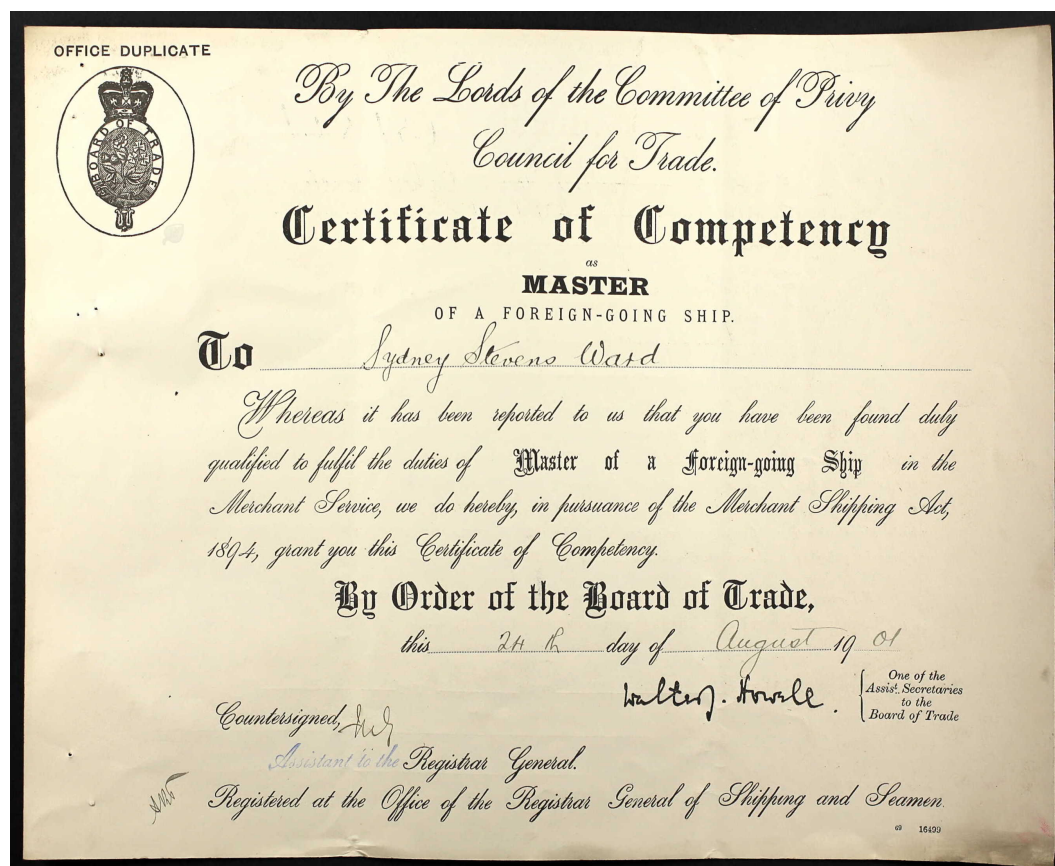 OFFICE DUPLICATE
BOARD OF TRADE
By The Lords of the Committee of Privy
Council for Trade.
Certificate of Competency
as
MASTER
OF A FOREIGN-GOING SHIP.
To Sydney Stevens Ward
Whereas it has been reported to us that you have been found duly
qualified to fulfil the duties of Master of a Foreign-going Ship in the
Merchant Service, we do hereby, in pursuance of the Merchant Shipping Act,
1894, grant you this Certificate of Competency.
By Order of the Board of Trade,
this 24th day of August 1901
Walter J. Howell.
One of the
Assist. Secretaries
to the
Board of Trade
Countersigned,
Assistant to the Registrar General.
Registered at the Office of the Registrar General of Shipping and Seamen.
69 16499